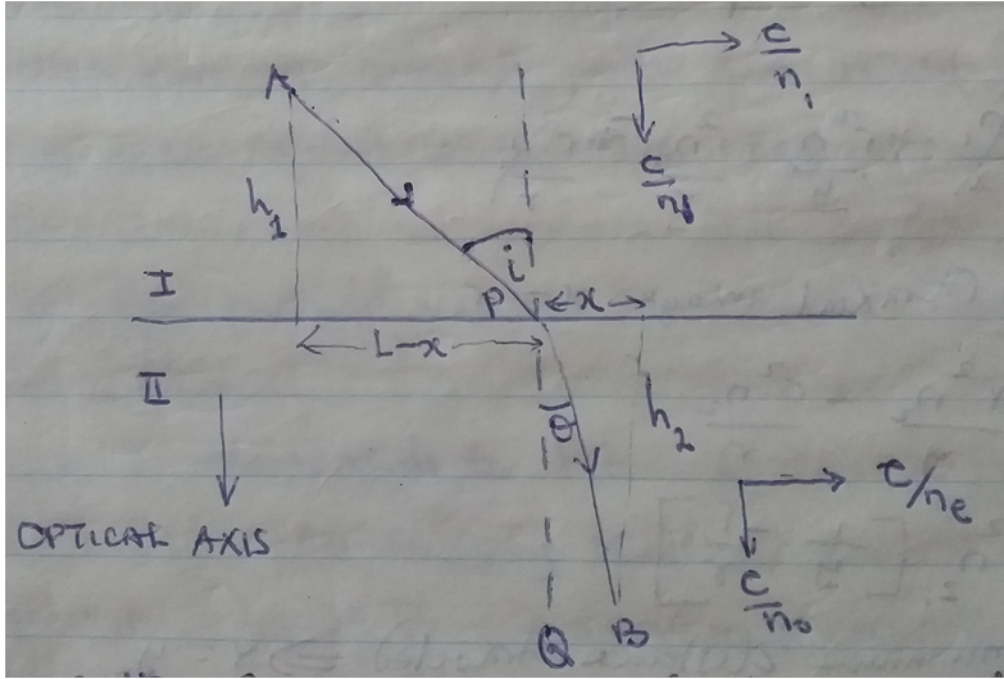 A
c/n₁
c/n₁
h₁
i
I
P
x
L-x
II
θ
h₂
c/nₑ
OPTICAL AXIS
c/n₀
Q
B